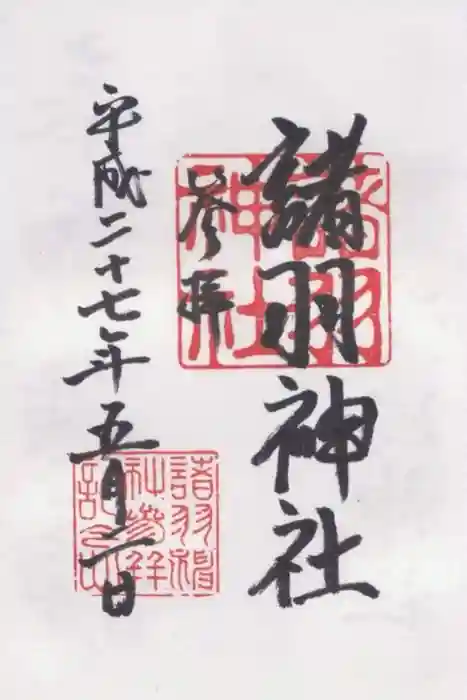 諸羽神社
参拝
平成二十七年五月二日
諸羽
神社
諸羽神
社参拝
記之印